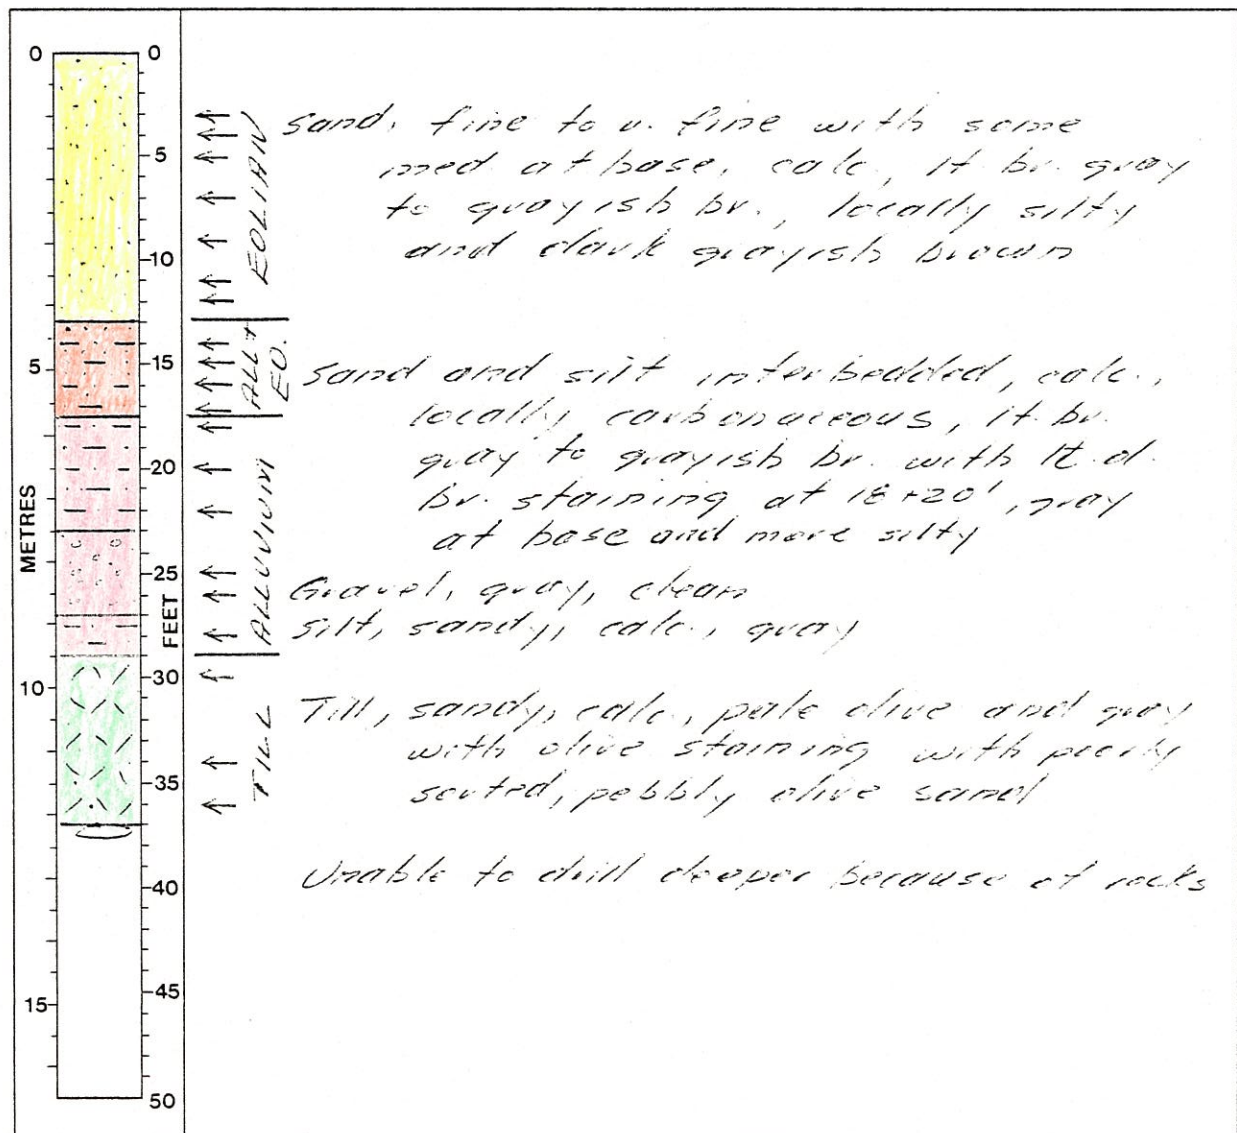 0
0
5
10
5
15
20
METRES
25
FEET
10
30
35
40
15
45
50
EOLIAN
ALL+
EO.
ALLUVIUM
TILL
Sand, fine to v. fine with some
med. at base, calc., lt. br. gray
to grayish br., locally silty
and dark grayish brown
Sand and silt interbedded, calc.,
locally carbonaceous, lt. br.
gray to grayish br. with lt. d.
br. staining at 18+20', gray
at base and more silty
Gravel, gray, clean
Silt, sandy, calc., gray
Till, sandy, calc., pale olive and gray
with olive staining with poorly
sorted, pebbly olive sand
Unable to drill deeper because of rocks